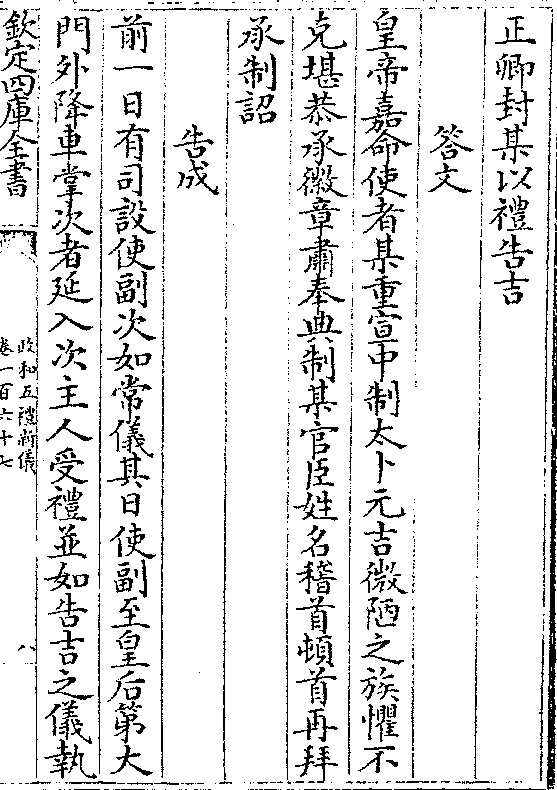 正卿封某以禮告吉
答文
皇帝嘉命使者某重宣中制太卜元吉微陋之族懼不
克堪恭承徽章肅奉典制某官臣姓名稽首頓首再拜
承制詔
告成
前一日有司設使副次如常儀其日使副至皇后第大
門外降車掌次者延入次主人受禮並如告吉之儀執
欽定四庫全書
政和五禮新儀
卷一百六十七
八